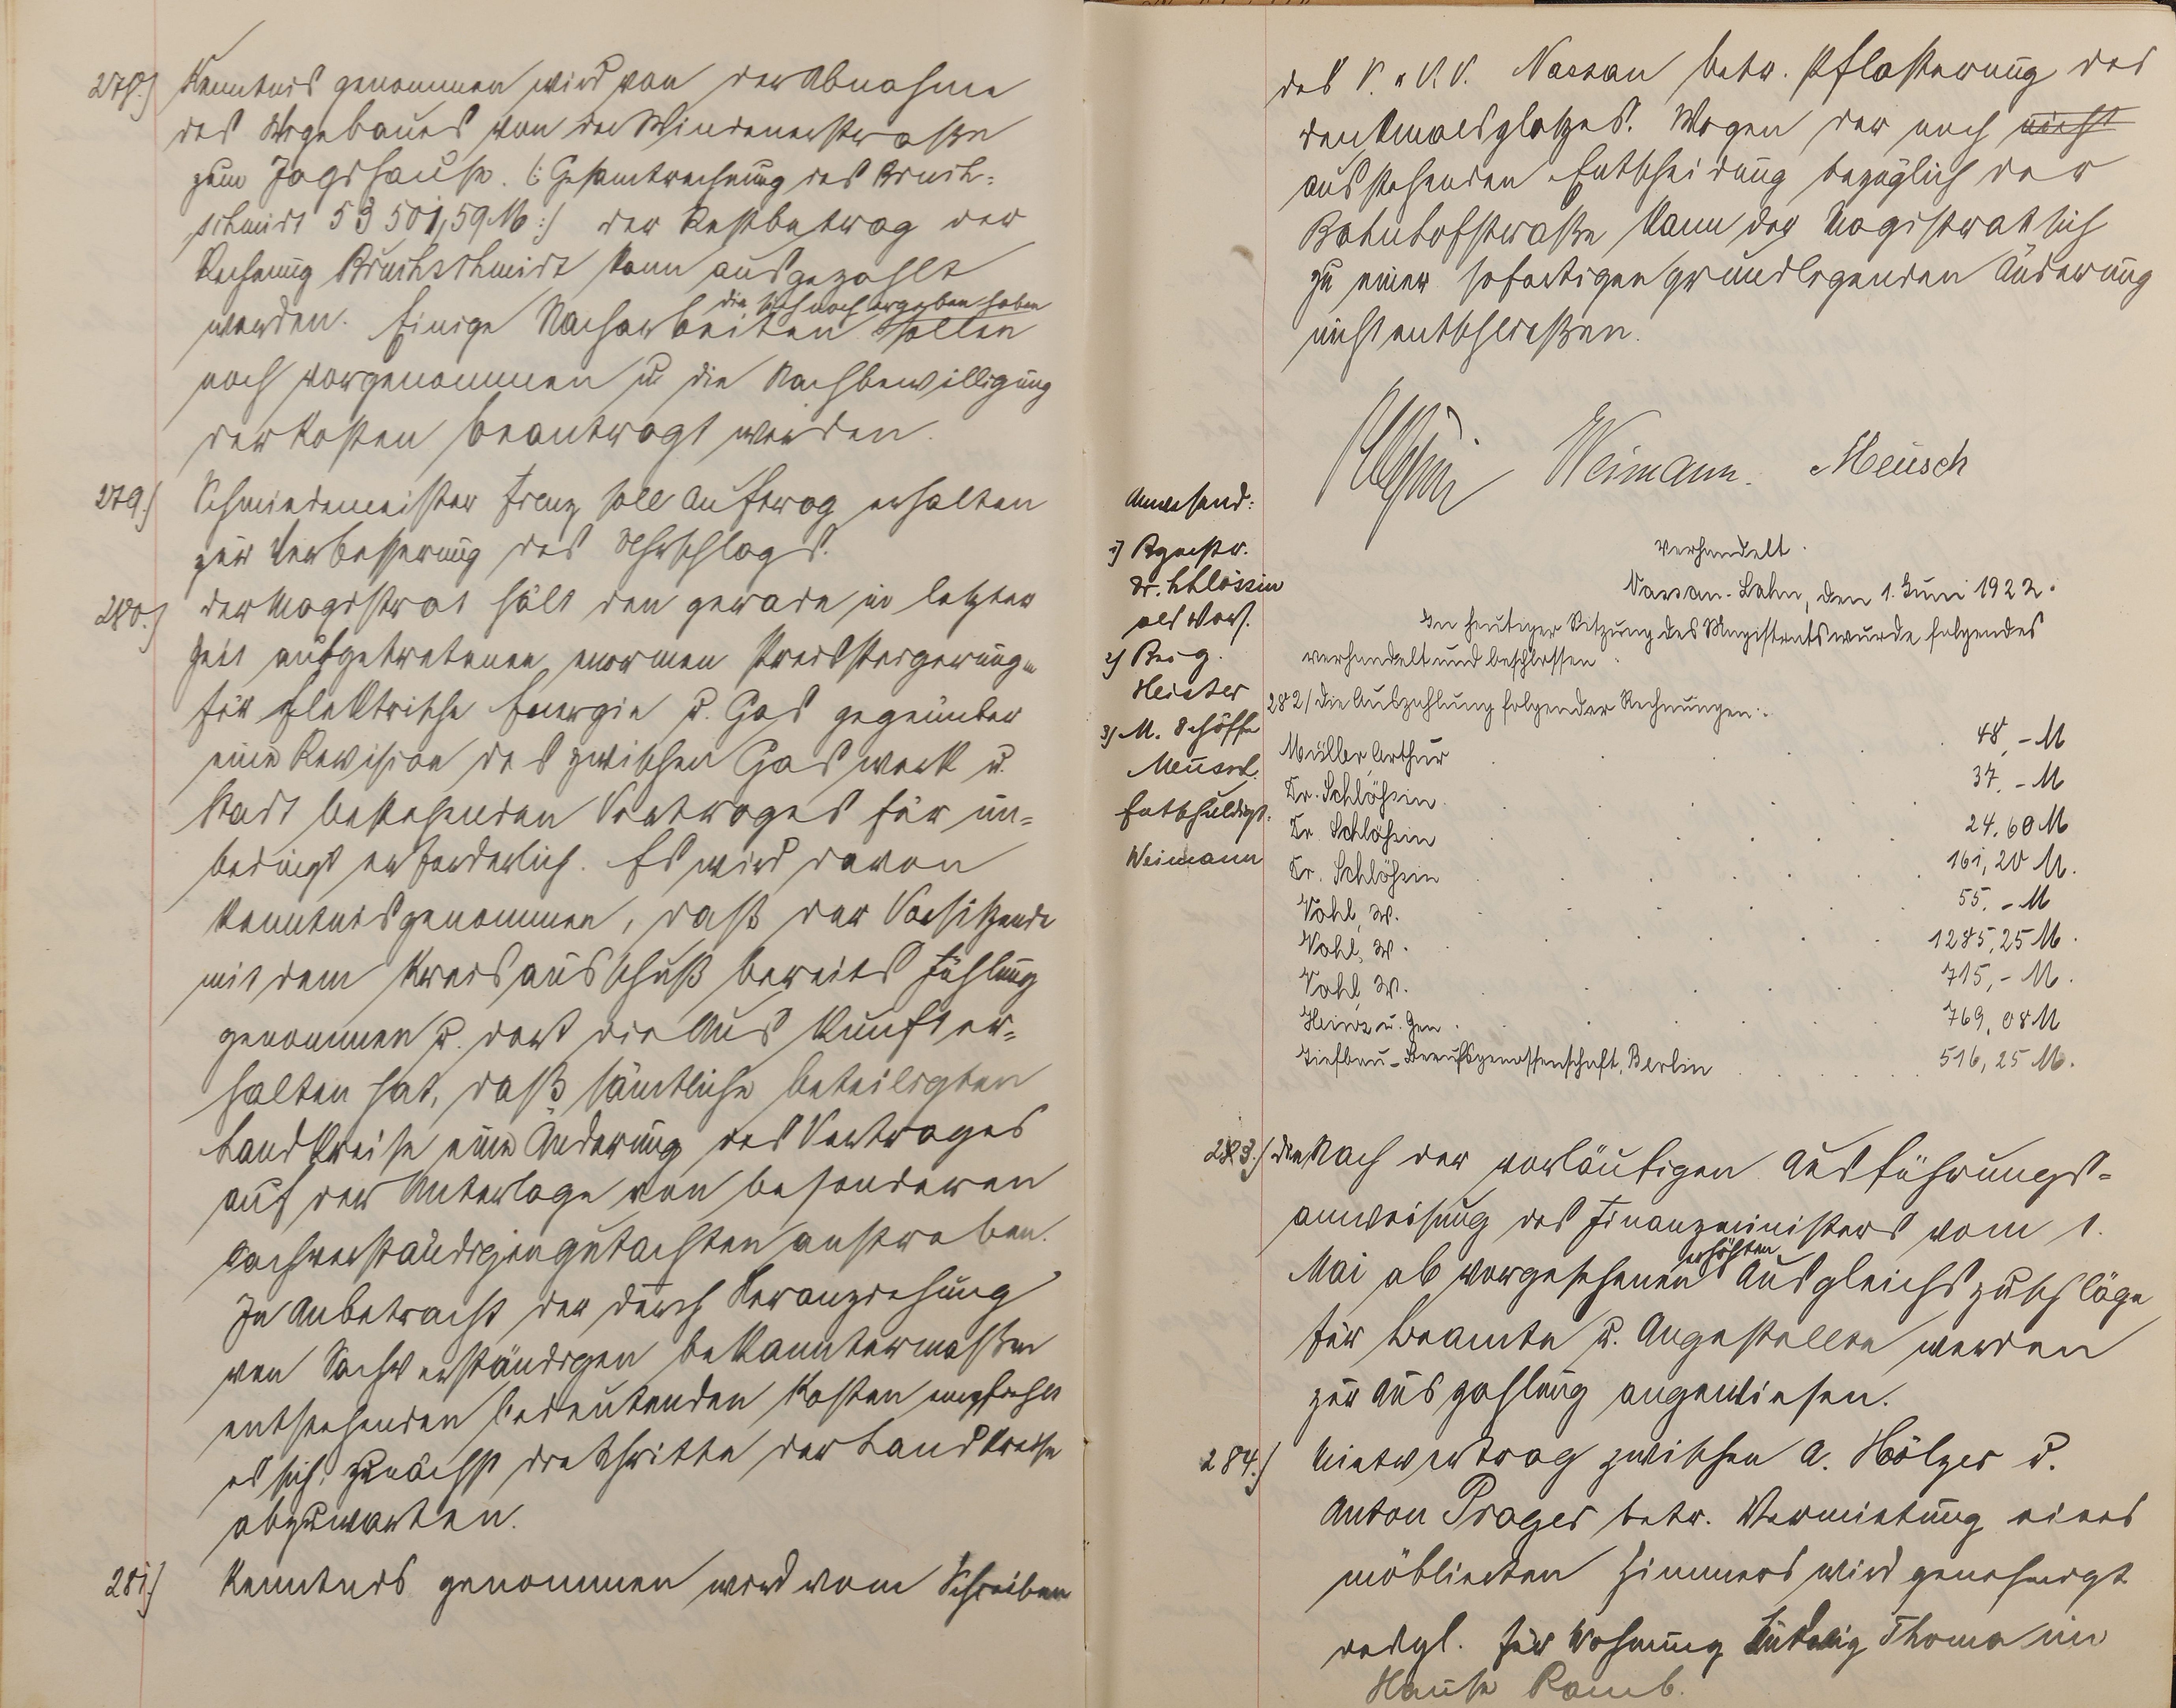 278.) Kenntnis genommen wird von der Abnahme
des Wegebaues von der Windenerstraße
zum Jagdhause. (: Gesamtrechnung des Bruch-
schmidt 53 501,59 M :) der Restbetrag der
Rechnung Bruchschmidt kann ausgezahlt
die sich noch ergeben haben
werden. Einige Nacharbeiten sollen
noch vorgenommen u. die Nachbewilligung
der Kosten beantragt werden.
279.) Schmiedemeister Frenz soll Auftrag erhalten
zur Verbesserung des Uhrschlags.
280.) der Magistrat hält den gerade in letzter
Zeit aufgetretenen, enormen Preissteigerungen
für elektrische Energie u. Gas gegenüber
eine Revision des zwischen Gaswerk u.
Stadt bestehenden Vertrages für un-
bedingt erforderlich. Es wird davon
Kenntnis genommen, daß der Vorsitzende
mit dem Kreisausschuß bereits Fühlung
genommen u. dort die Auskunft er-
halten hat, daß sämtliche beteiligten
Landkreise eine Änderung des Vertrages
auf der Unterlage von besonderen
Sachverständigengutachten anstreben.
In Anbetracht der durch Heranziehung
von Sachverständigen bekanntermaßen
entstehenden bedeutenden Kosten empfiehlt
es sich, zunächst die Schritte der Landkreise
abzuwarten.
281.) Kenntnis genommen wird vom Schreiben
des V. u. V.V. Nassau betr. Pflasterung des
denkmalsplatzes. Wegen der noch nicht
ausstehenden Entscheidung bezüglich der
Bahnhofstraße kann der Magistrat sich
zu einer sofortigen grundlegenden Änderung
nicht entschließen.
Weimann. Meusch
Anwesend:
1) Bgmstr.
Dr. Schlössin
als Vors.
2) Beig.
Heister
3) M. Schöffe
Meusch.
Entschuldigt.
Weimann
Verhandelt.
Nassau-Lahn, den 1. Juni 1922.
In heutiger Sitzung des Magistrats wurde folgendes
verhandelt und beschlossen.
282/ die Auszahlung folgender Rechnungen:
Müller, Arthur . . . 48,- M
Dr. Schlößin . . . . . 37,- M
Dr. Schlößin . . . . . 24,60 M
Dr. Schlößin . . . . . 161,20 M.
Vohl, W. . . . . . 55,- M
Vohl, W. . . . . . 1285,25 M.
Vohl, W. . . . . . 715,- M.
Heinz u. Gen. . . . . . 769,08 M
Tiefbau-Berufsgenossenschaft, Berlin . . . . . 516,25 M.
283.) die Nach der vorläufigen Ausführungs-
anweisung des Finanzministers vom 1.
erhöhten
Mai ab vorgesehenen Ausgleichszuschläge
für Beamte u. Angestellte werden
zur Auszahlung angewiesen.
284.) Mietvertrag zwischen A. Hölzer u.
Anton Prager betr. Vermietung eines
möblierten Zimmers wird genehmigt
desgl. für Wohnung Ludwig Thoma im
Hause Ramb.